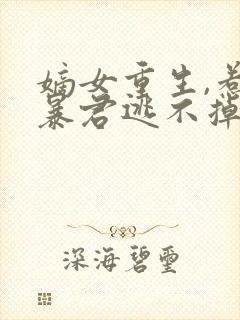 嫡女重生,惹
暴君逃不掉
深海碧玺